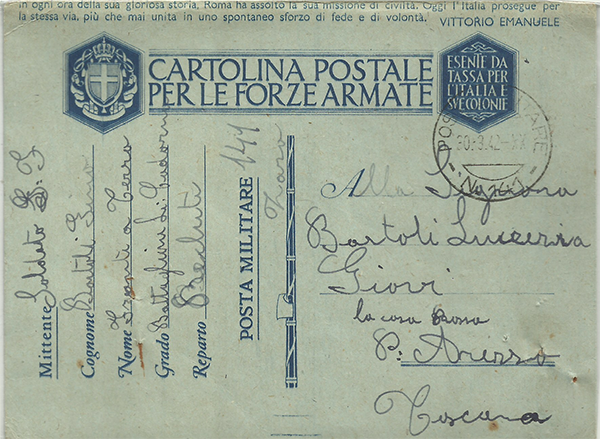 in ogni ora della sua gloriosa storia, Roma ha assolto la sua missione di civiltà. Oggi l'Italia prosegue per
la stessa via, più che mai unita in uno spontaneo sforzo di fede e di volontà.
VITTORIO EMANUELE
CARTOLINA POSTALE
PER LE FORZE ARMATE
ESENTE DA
TASSA PER
L'ITALIA E
SVE COLONIE
30.3.42-XX
Mittente Soldato
Cognome Bartoli Gino
Nome
Grado Battaglioni
Reparto Reclute
POSTA MILITARE 141
Zara
Alla Signora
Bartoli Lucrezia
Giovi
la casa Rossa
P. Arezzo
Toscana